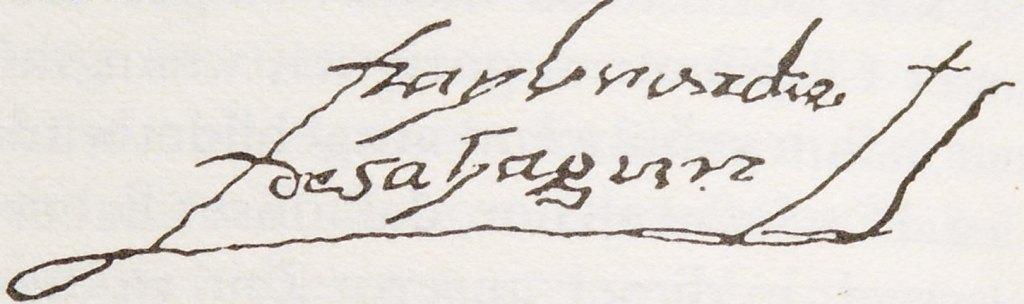 fray bernardino
de sahagun